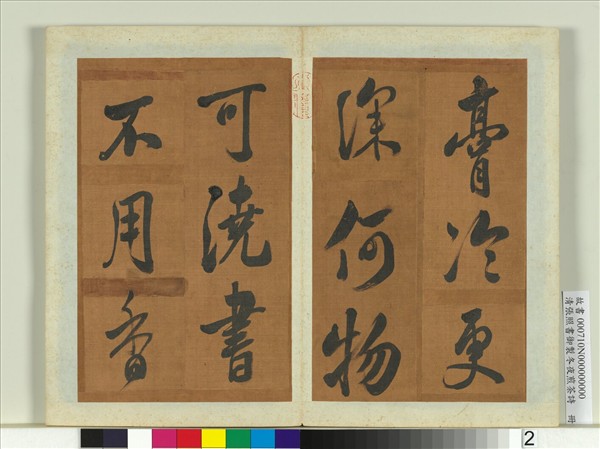 膏冷更
深何物
可澆書
不用香
故書000710N000000000
清張照書御製冬夜煎茶詩 冊
2